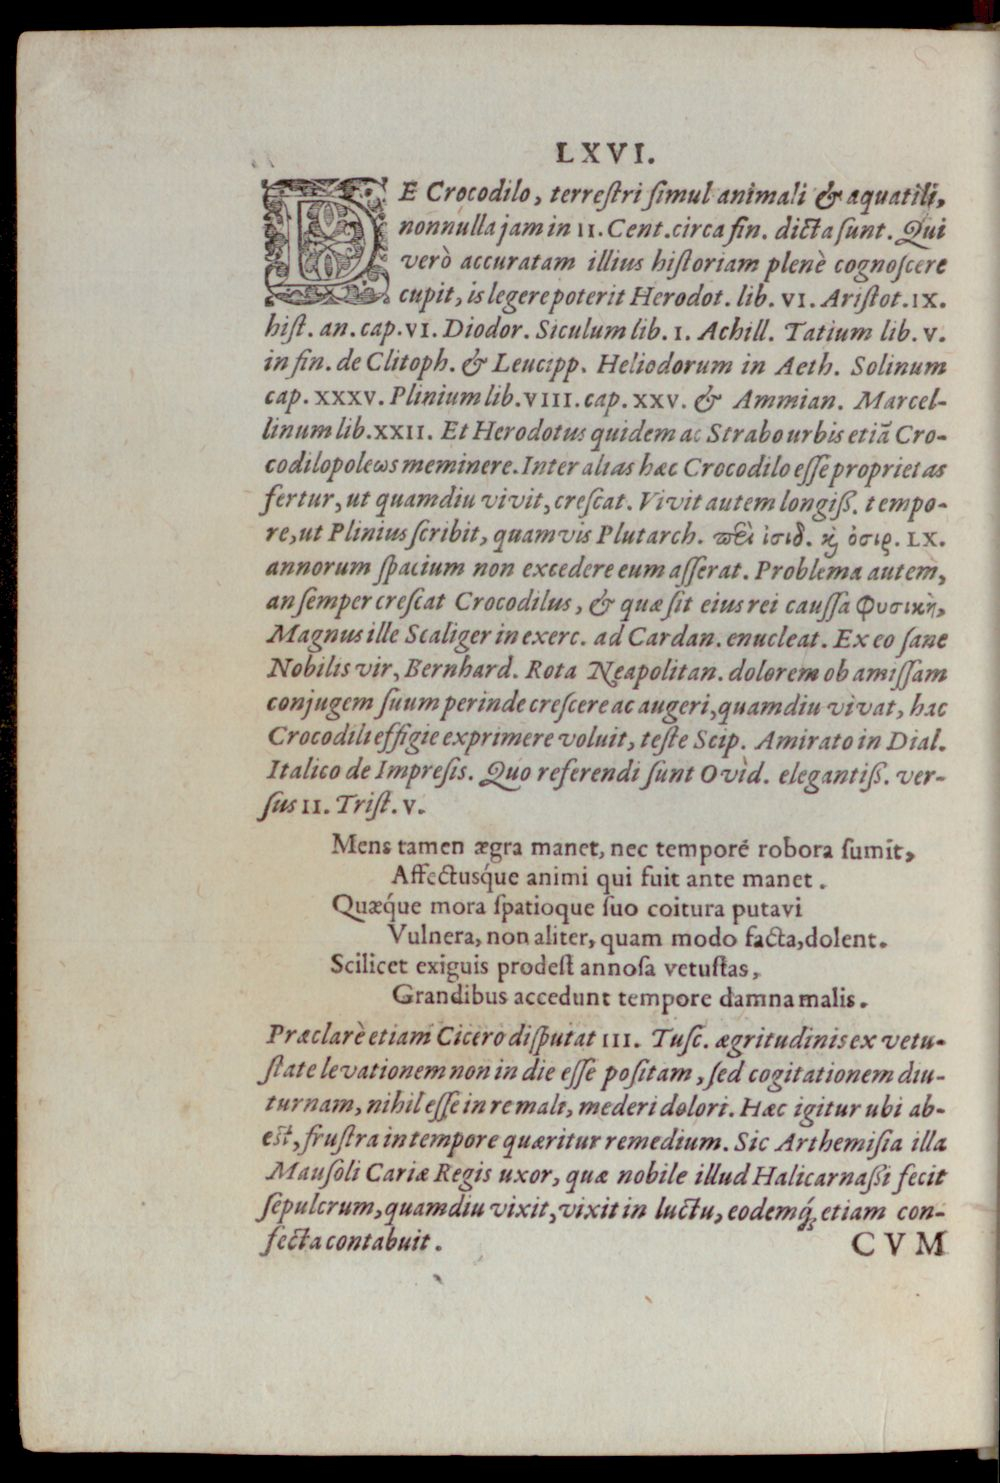 LXVI.
DE Crocodilo, terreſtri ſimul animali & aquatili,
nonnulla jam in II. Cent. circa fin. dicta ſunt. Qui
verò accuratam illius hiſtoriam plenè cognoſcere
cupit, is legere poterit Herodot. lib. VI. Ariſtot. IX.
hiſt. an. cap. VI. Diodor. Siculum lib. I. Achill. Tatium lib. V.
in fin. de Clitoph. & Leucipp. Heliodorum in Aeth. Solinum
cap. XXXV. Plinium lib. VIII. cap. XXV. & Ammian. Marcel-
linum lib. XXII. Et Herodotus quidem ac Strabo urbis etiã Cro-
codilopoleωs meminere. Inter alias hæc Crocodilo eſſe proprietas
fertur, ut quamdiu vivit, creſcat. Vivit autem longiß. tempo-
re, ut Plinius ſcribit, quamvis Plutarch. πεὶ ἰσιδ. ϗ ὀσιρ. LX.
annorum ſpacium non excedere eum aſſerat. Problema autem,
an ſemper creſcat Crocodilus, & quæ ſit eius rei cauſſa φυσικὴ,
Magnus ille Scaliger in exerc. ad Cardan. enucleat. Ex eo ſane
Nobilis vir, Bernhard. Rota Neapolitan. dolorem ob amiſſam
conjugem ſuum perinde creſcere ac augeri, quamdiu vivat, hac
Crocodili effigie exprimere voluit, teſte Scip. Amirato in Dial.
Italico de Impreſis. Quo referendi ſunt Ovid. elegantiß. ver-
ſus II. Triſt. V.
Mens tamen ægra manet, nec temporé robora ſumit,
Affectusq́ue animi qui fuit ante manet.
Quæq́ue mora ſpatioque ſuo coitura putavi
Vulnera, non aliter, quam modo facta, dolent.
Scilicet exiguis prodeſt annoſa vetuſtas,
Grandibus accedunt tempore damna malis.
Præclarè etiam Cicero diſputat III. Tuſc. ægritudinis ex vetu-
ſtate levationem non in die eſſe poſitam, ſed cogitationem diu-
turnam, nihil eſſe in re mali, mederi dolori. Hæc igitur ubi ab-
eſt, fruſtra in tempore quæritur remedium. Sic Arthemiſia illa
Mauſoli Cariæ Regis uxor, quæ nobile illud Halicarnaßi fecit
ſepulcrum, quamdiu vixit, vixit in luctu, eodemq́; etiam con-
fecta contabuit.
CVM